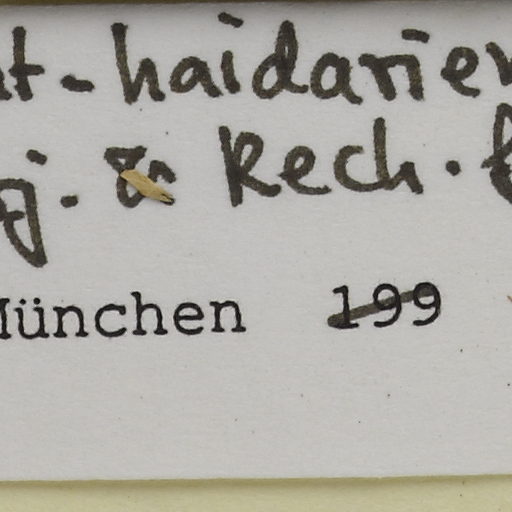 t-haidarien
j. & Rech. f
München 199